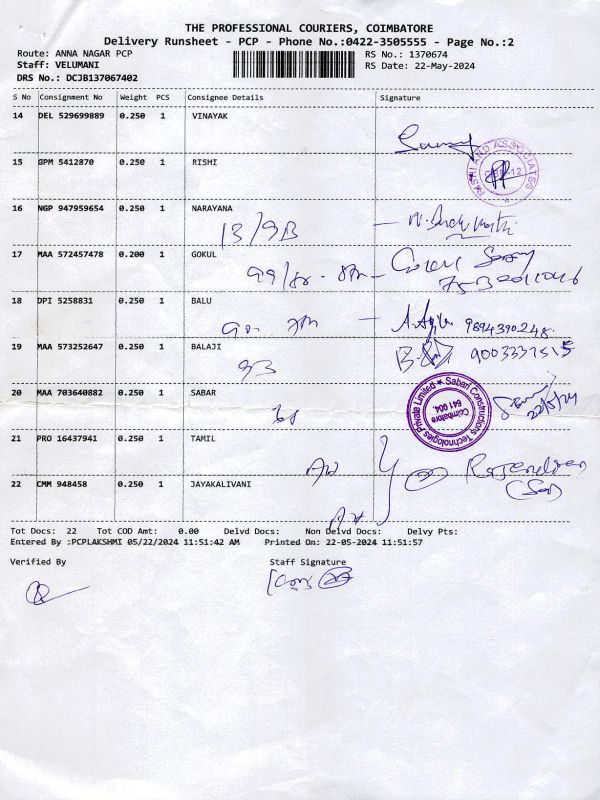 THE PROFESSIONAL COURIERS, COIMBATORE
Delivery Runsheet - PCP - Phone No.:0422-3505555 - Page No.:2
Route: ANNA NAGAR PCP RS No.: 1370674
Staff: VELUMANI RS Date: 22-May-2024
DRS No.: DCJB137067402
S No Consignment No Weight PCS Consignee Details Signature
14 DEL 529699889 0.250 1 VINAYAK
15 GPM 5412870 0.250 1 RISMI
16 NGP 947959654 0.250 1 NARAYANA
13/9B
17 MAA 572457478 0.200 1 GOKUL
18 DPI 5258831 0.250 1 BALU
9894390248
19 MAA 573252647 0.250 1 BALAJI
9B
20 MAA 703640882 0.250 1 SABAR
Sabari Constructions Technologies Private Limited
Coimbatore
641 004.
22/5/24
21 PRO 16437941 0.250 1 TAMIL
Rajendran
22 CMM 948458 0.250 1 JAYAKALIVANI
Tot Docs: 22 Tot COD Amt: 0.00 Delvd Docs: Non Delvd Docs: Delvy Pts:
Entered By :PCPLAKSHMI 05/22/2024 11:51:42 AM Printed On: 22-05-2024 11:51:57
Verified By Staff Signature